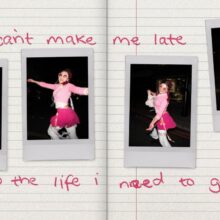 can't make me late
the life i need to g